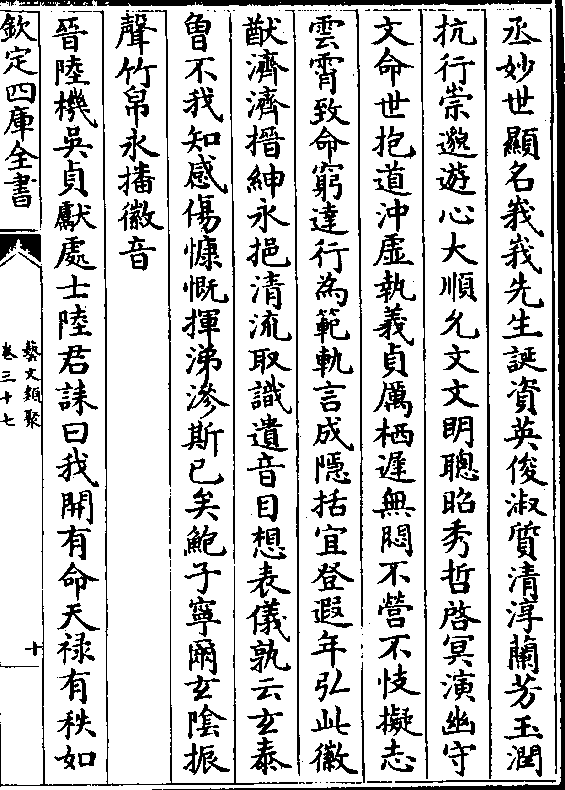 丞妙世顯名峩峩先生誕資英俊淑質清淳蘭芳玉潤
抗行崇邈遊心大順允文文明聰昭秀哲啓冥演幽守
文命世抱道沖虛執義貞厲栖遲無悶不營不忮擬志
雲霄致命窮達行為範軌言成隱括宜登遐年弘此徽
猷濟濟搢紳永挹清流取識遺音目想表儀孰云玄泰
曾不我知感傷慷慨揮涕滲斯已矣鮑子寧爾玄陰振
聲竹帛永播徽音
晉陸機吳貞獻處士陸君誄曰我聞有命天祿有秩如
欽定四庫全書
藝文類聚
卷三十七
十